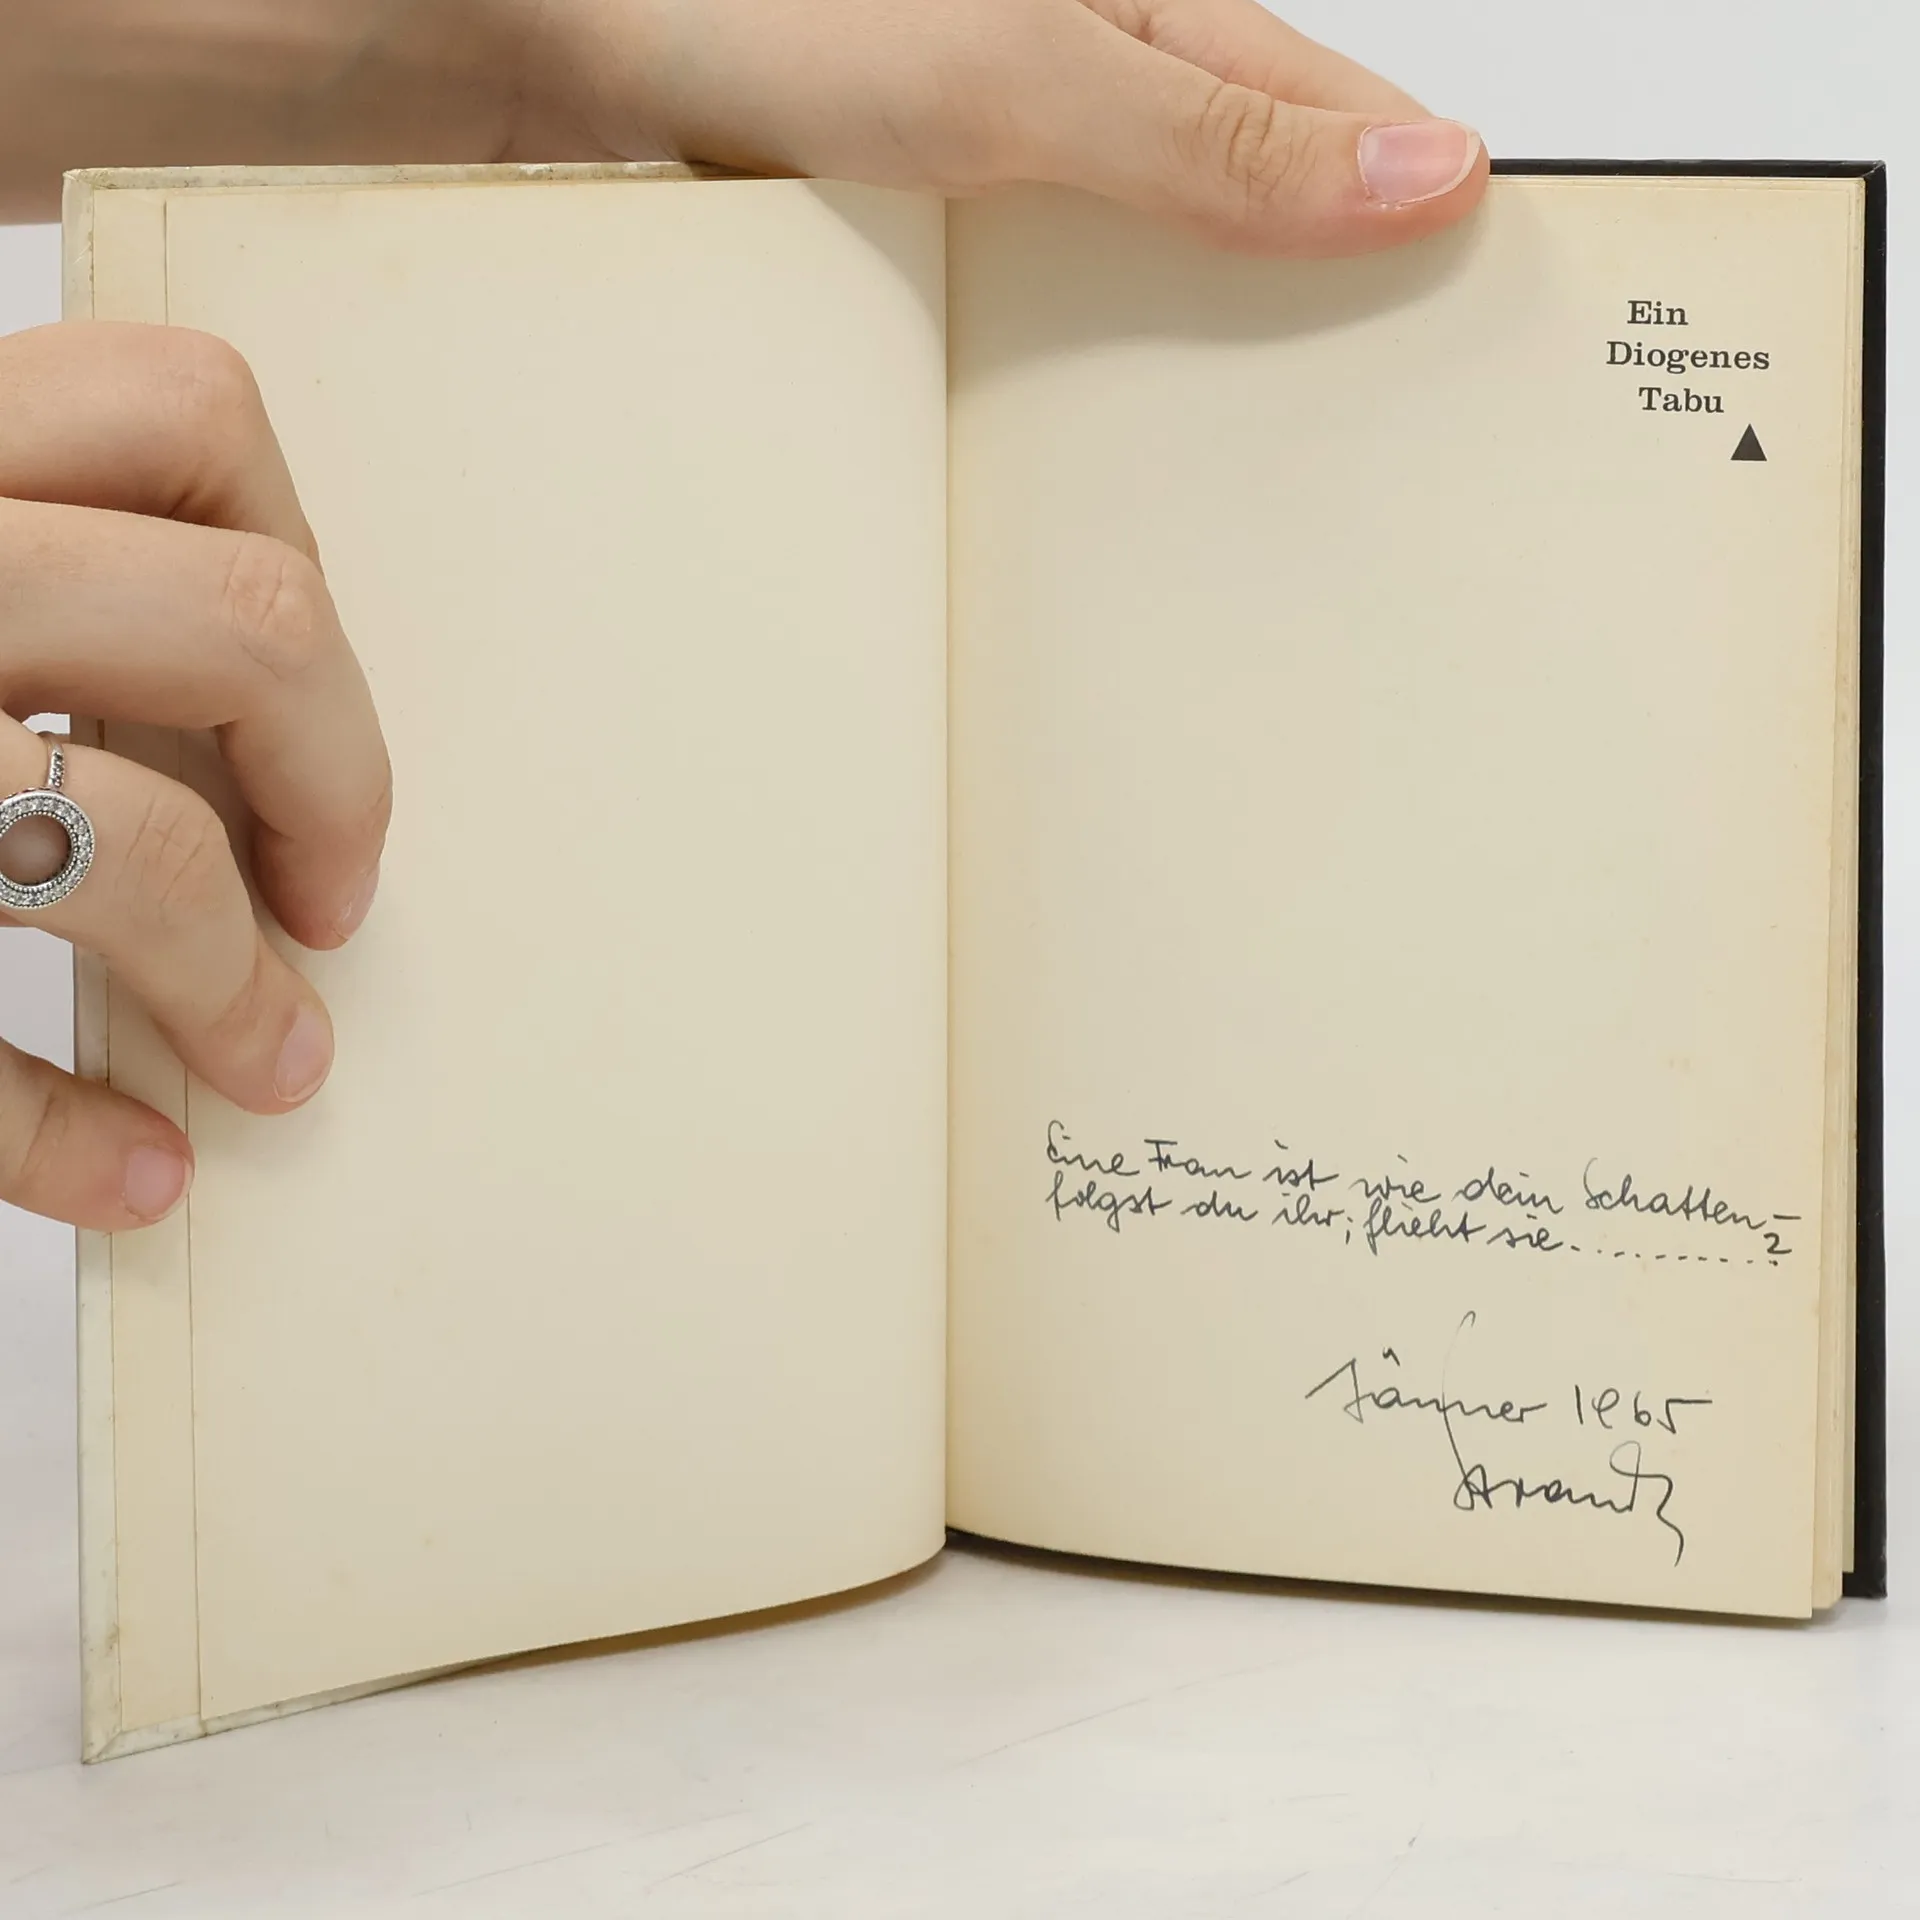 Ein
Diogenes
Tabu
Eine Frau ist wie dein Schatten –
folgst du ihr; flieht sie..........?
Jänner 1965